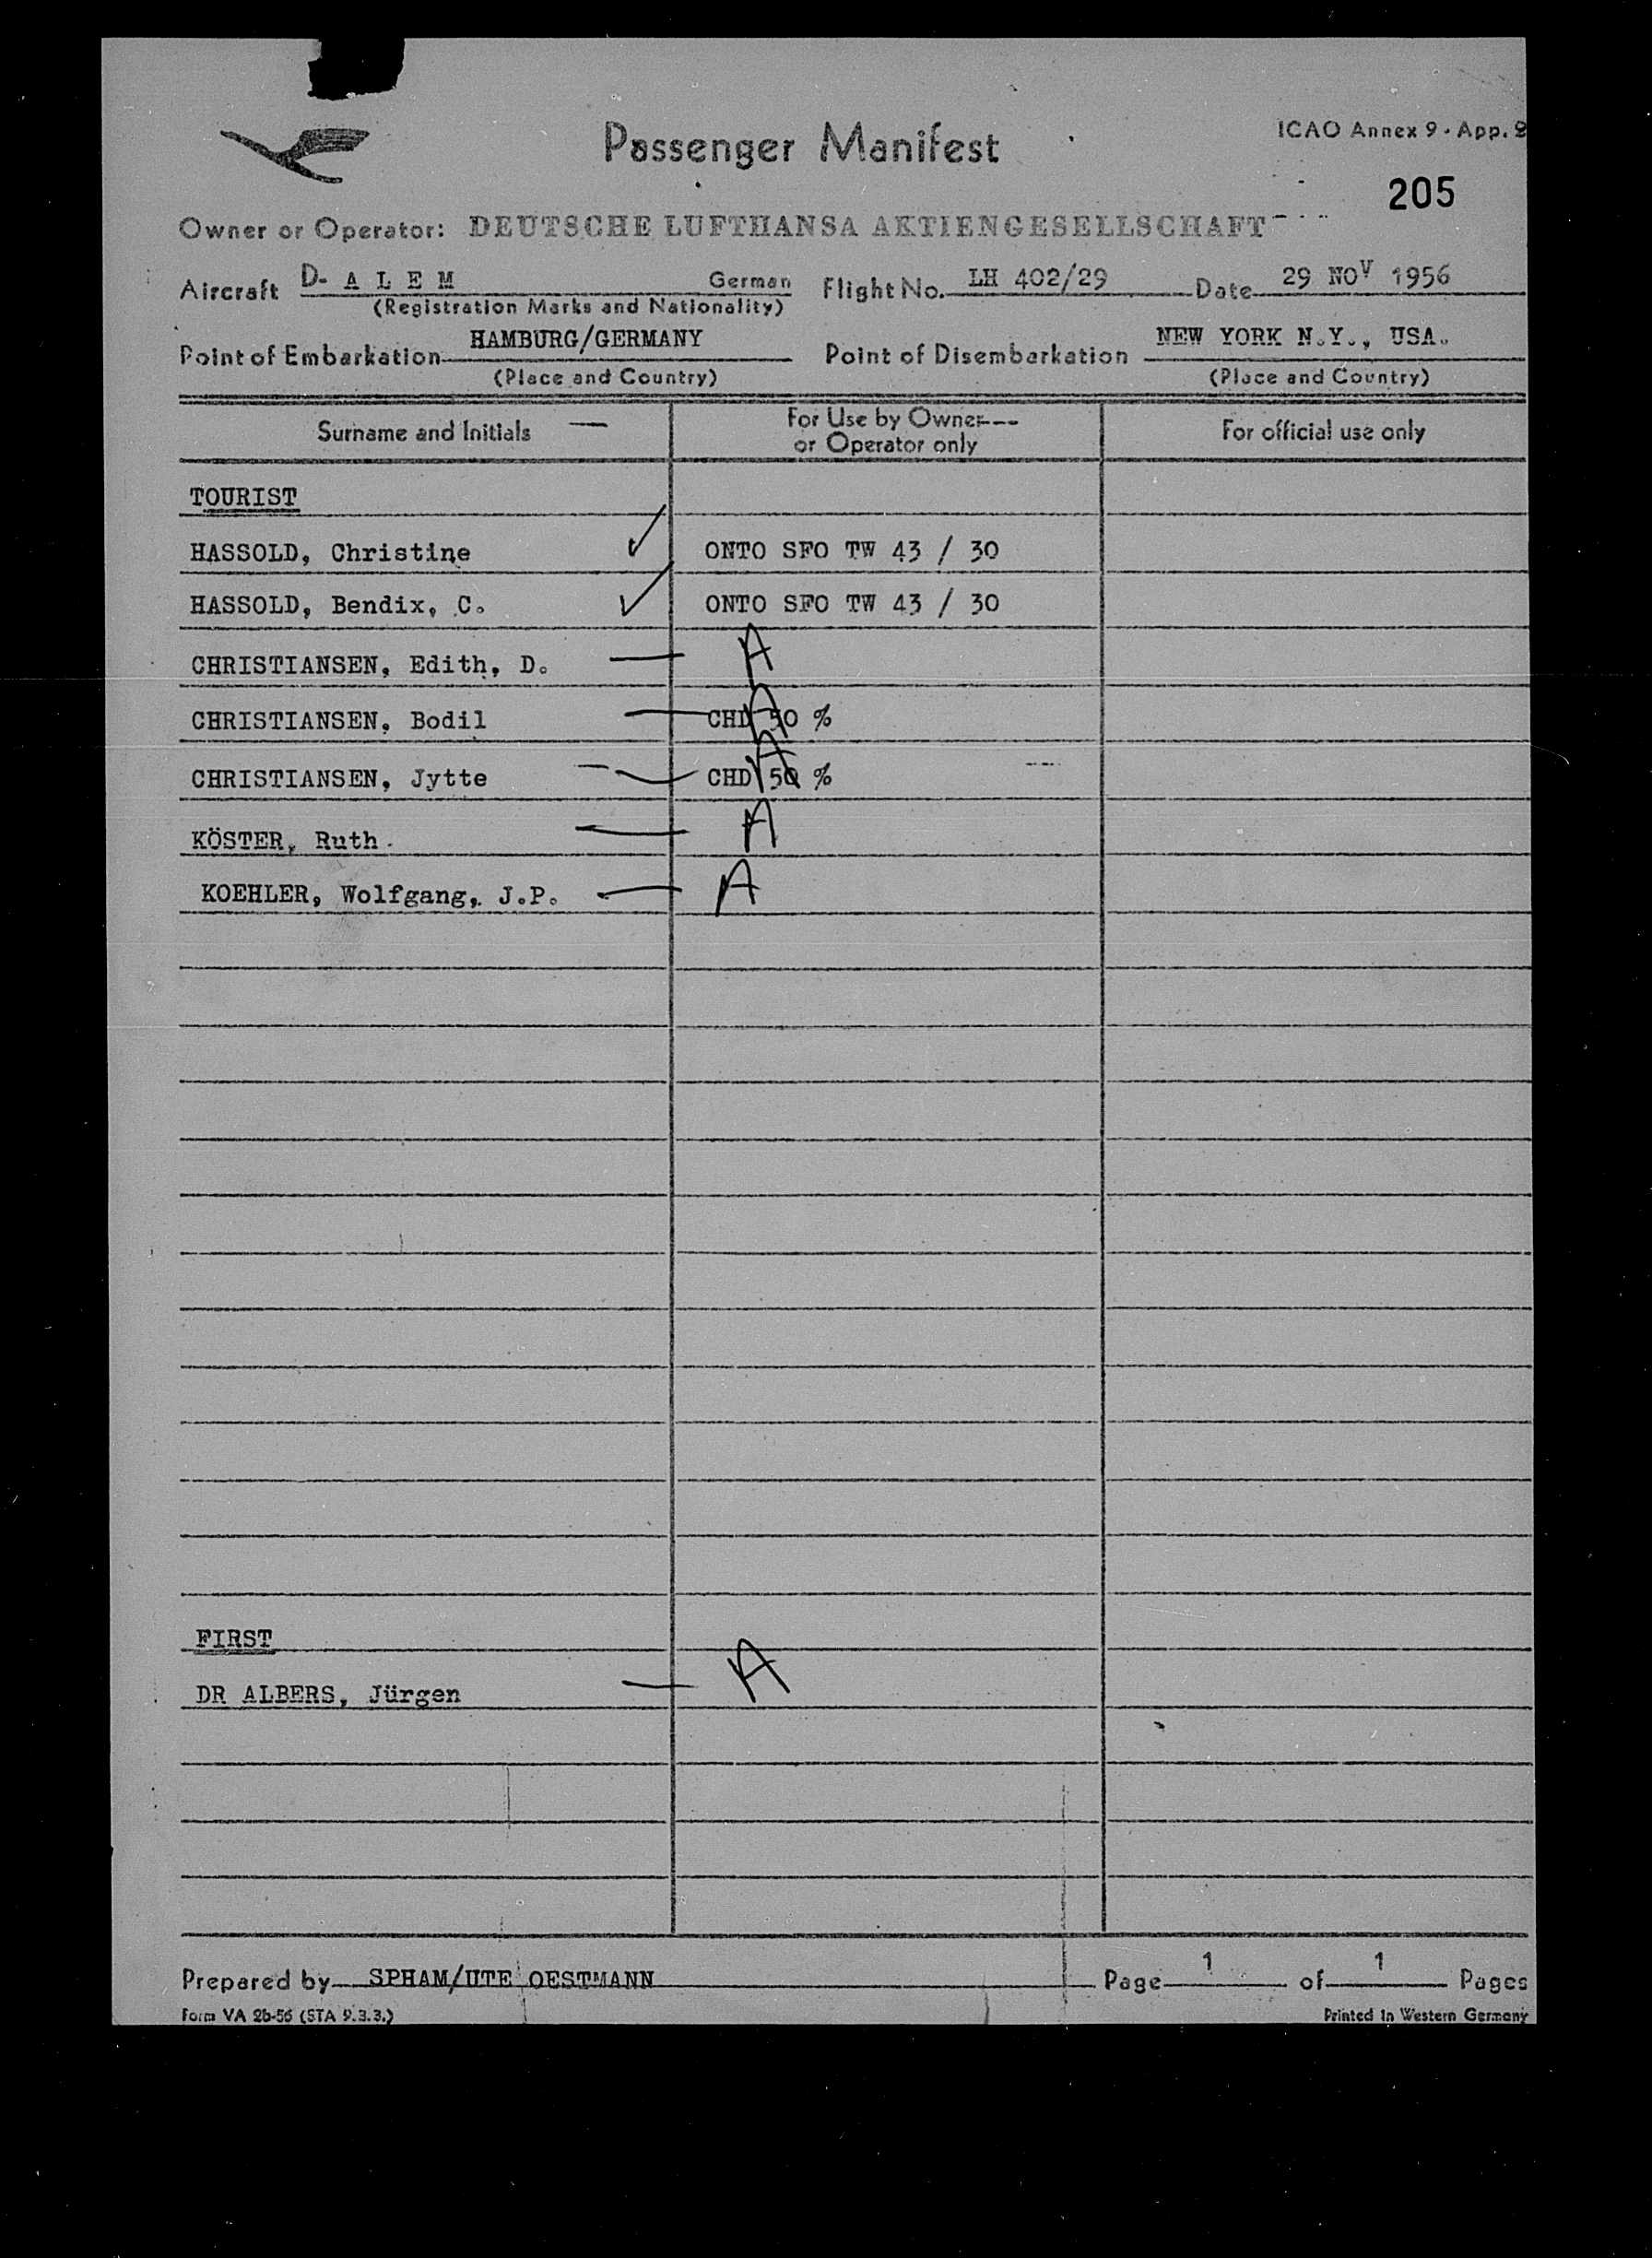 Passenger Manifest
ICAO Annex 9 - App. 2
205
Owner or Operator: DEUTSCHE LUFTHANSA AKTIENGESELLSCHAFT
Aircraft D- A L E M German Flight No. LH 402/29 Date 29 NOV 1956
(Registration Marks and Nationality)
Point of Embarkation HAMBURG/GERMANY Point of Disembarkation NEW YORK N.Y., USA.
(Place and Country) (Place and Country)
Surname and Initials For Use by Owner or Operator only For official use only
TOURIST
HASSOLD, Christine ✓ ONTO SFO TW 43 / 30
HASSOLD, Bendix, C. ✓ ONTO SFO TW 43 / 30
CHRISTIANSEN, Edith, D. — A
CHRISTIANSEN, Bodil — CHD 50 % A
CHRISTIANSEN, Jytte — CHD 50 % A
KÖSTER, Ruth — A
KOEHLER, Wolfgang, J.P. — A
FIRST
DR ALBERS, Jürgen — A
Prepared by SPHAM/UTE OESTMANN Page 1 of 1 Pages
Form VA 2b-56 (STA 9.3.3.) Printed in Western Germany